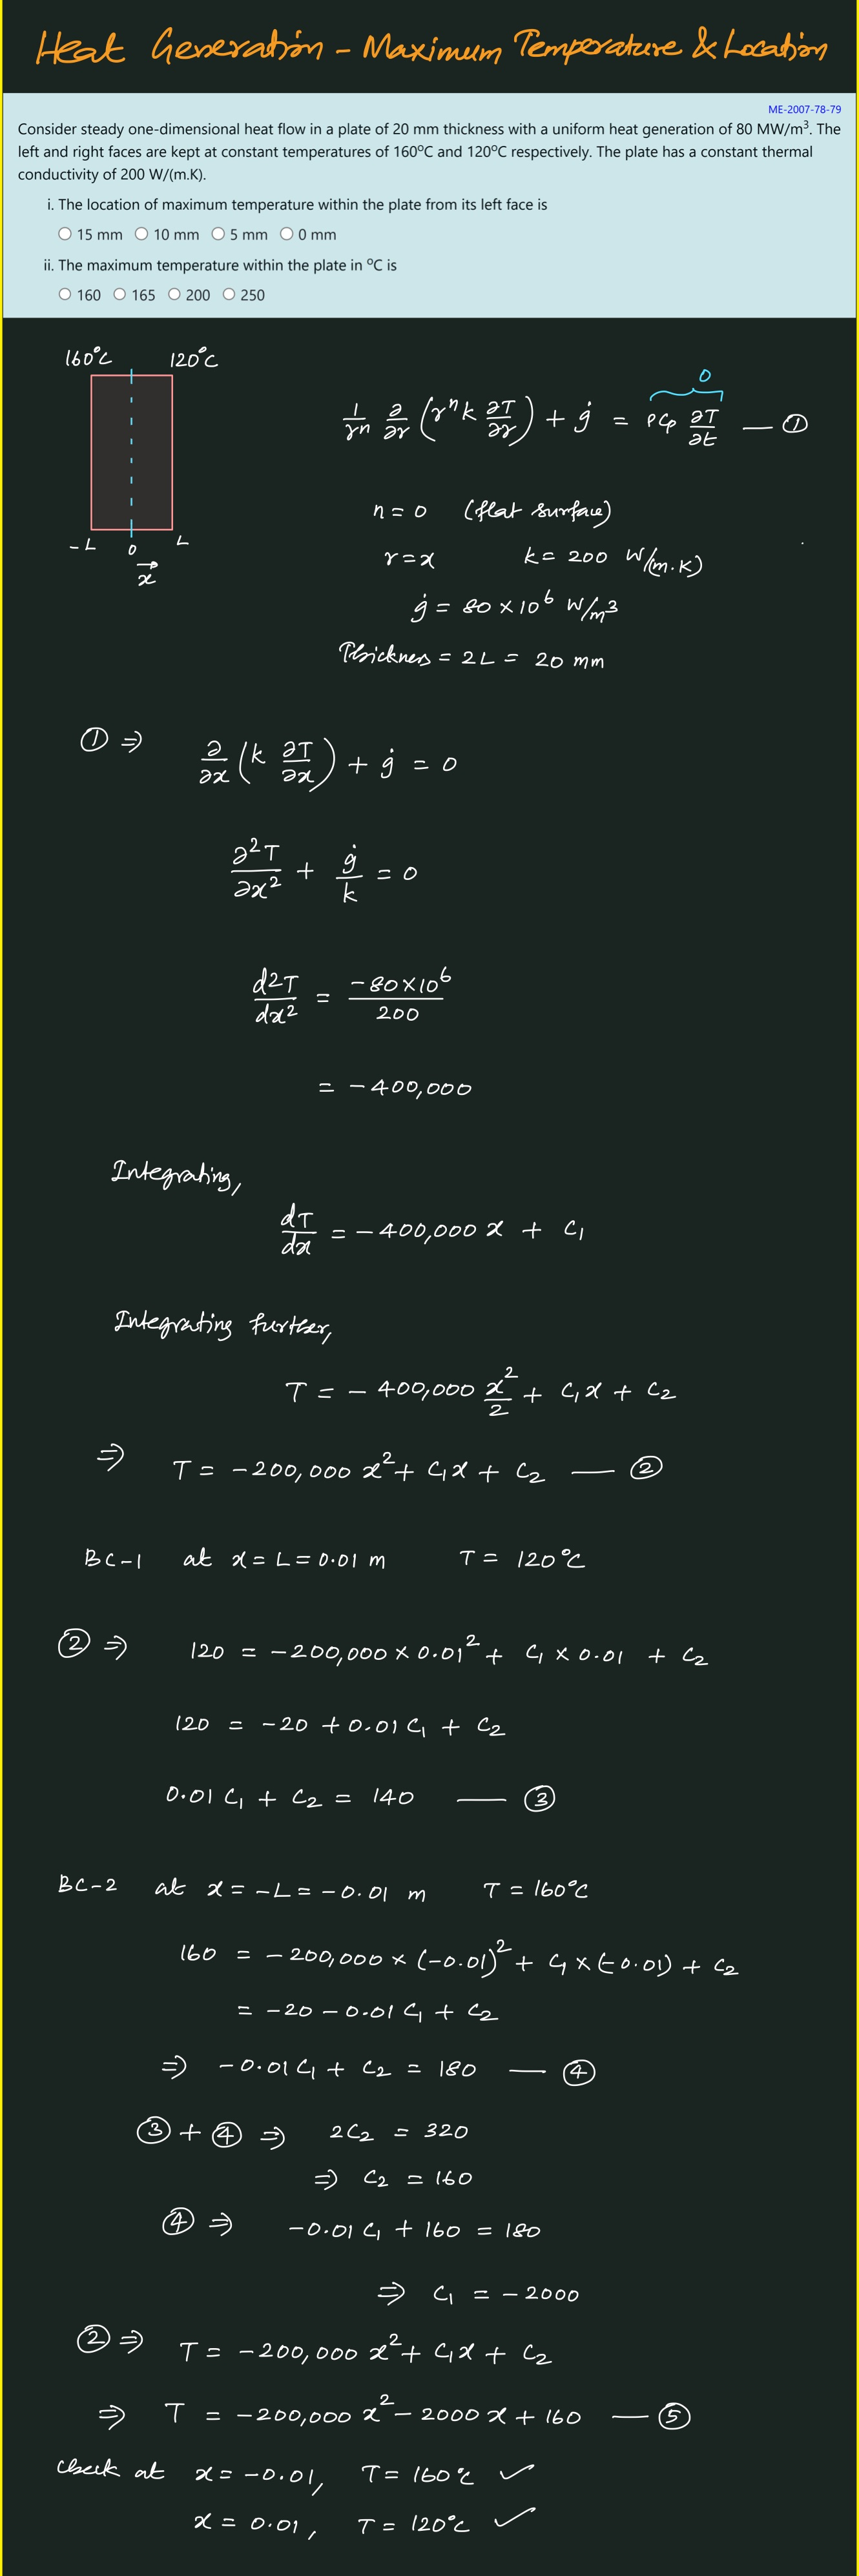 Heat Generation - Maximum Temperature & Location
ME-2007-78-79
Consider steady one-dimensional heat flow in a plate of 20 mm thickness with a uniform heat generation of 80 MW/m³. The
left and right faces are kept at constant temperatures of 160⁰C and 120⁰C respectively. The plate has a constant thermal
conductivity of 200 W/(m.K).
i. The location of maximum temperature within the plate from its left face is
15 mm 10 mm 5 mm 0 mm
ii. The maximum temperature within the plate in ⁰C is
160 165 200 250
160°C 120°C
-L 0 L
x
0
1/rⁿ ∂/∂r (rⁿ k ∂T/∂r) + ġ = ρCp ∂T/∂t — ①
n = 0 (flat surface)
r = x k = 200 W/(m.K)
ġ = 80 × 10⁶ W/m³
Thickness = 2L = 20 mm
① ⇒ ∂/∂x (k ∂T/∂x) + ġ = 0
∂²T/∂x² + ġ/k = 0
d²T/dx² = -80×10⁶/200
= -400,000
Integrating,
dT/dx = -400,000 x + C₁
Integrating further,
T = - 400,000 x²/2 + C₁x + C₂
⇒ T = -200,000 x² + C₁x + C₂ — ②
BC-1 at x = L = 0.01 m T = 120°C
② ⇒ 120 = -200,000 × 0.01² + C₁ × 0.01 + C₂
120 = -20 + 0.01 C₁ + C₂
0.01 C₁ + C₂ = 140 — ③
BC-2 at x = -L = -0.01 m T = 160°C
160 = -200,000 × (-0.01)² + C₁ × (-0.01) + C₂
= -20 - 0.01 C₁ + C₂
⇒ -0.01 C₁ + C₂ = 180 — ④
③ + ④ ⇒ 2C₂ = 320
⇒ C₂ = 160
④ ⇒ -0.01 C₁ + 160 = 180
⇒ C₁ = -2000
② ⇒ T = -200,000 x² + C₁x + C₂
⇒ T = -200,000 x² - 2000 x + 160 — ⑤
Check at x = -0.01, T = 160°C ✓
x = 0.01, T = 120°C ✓